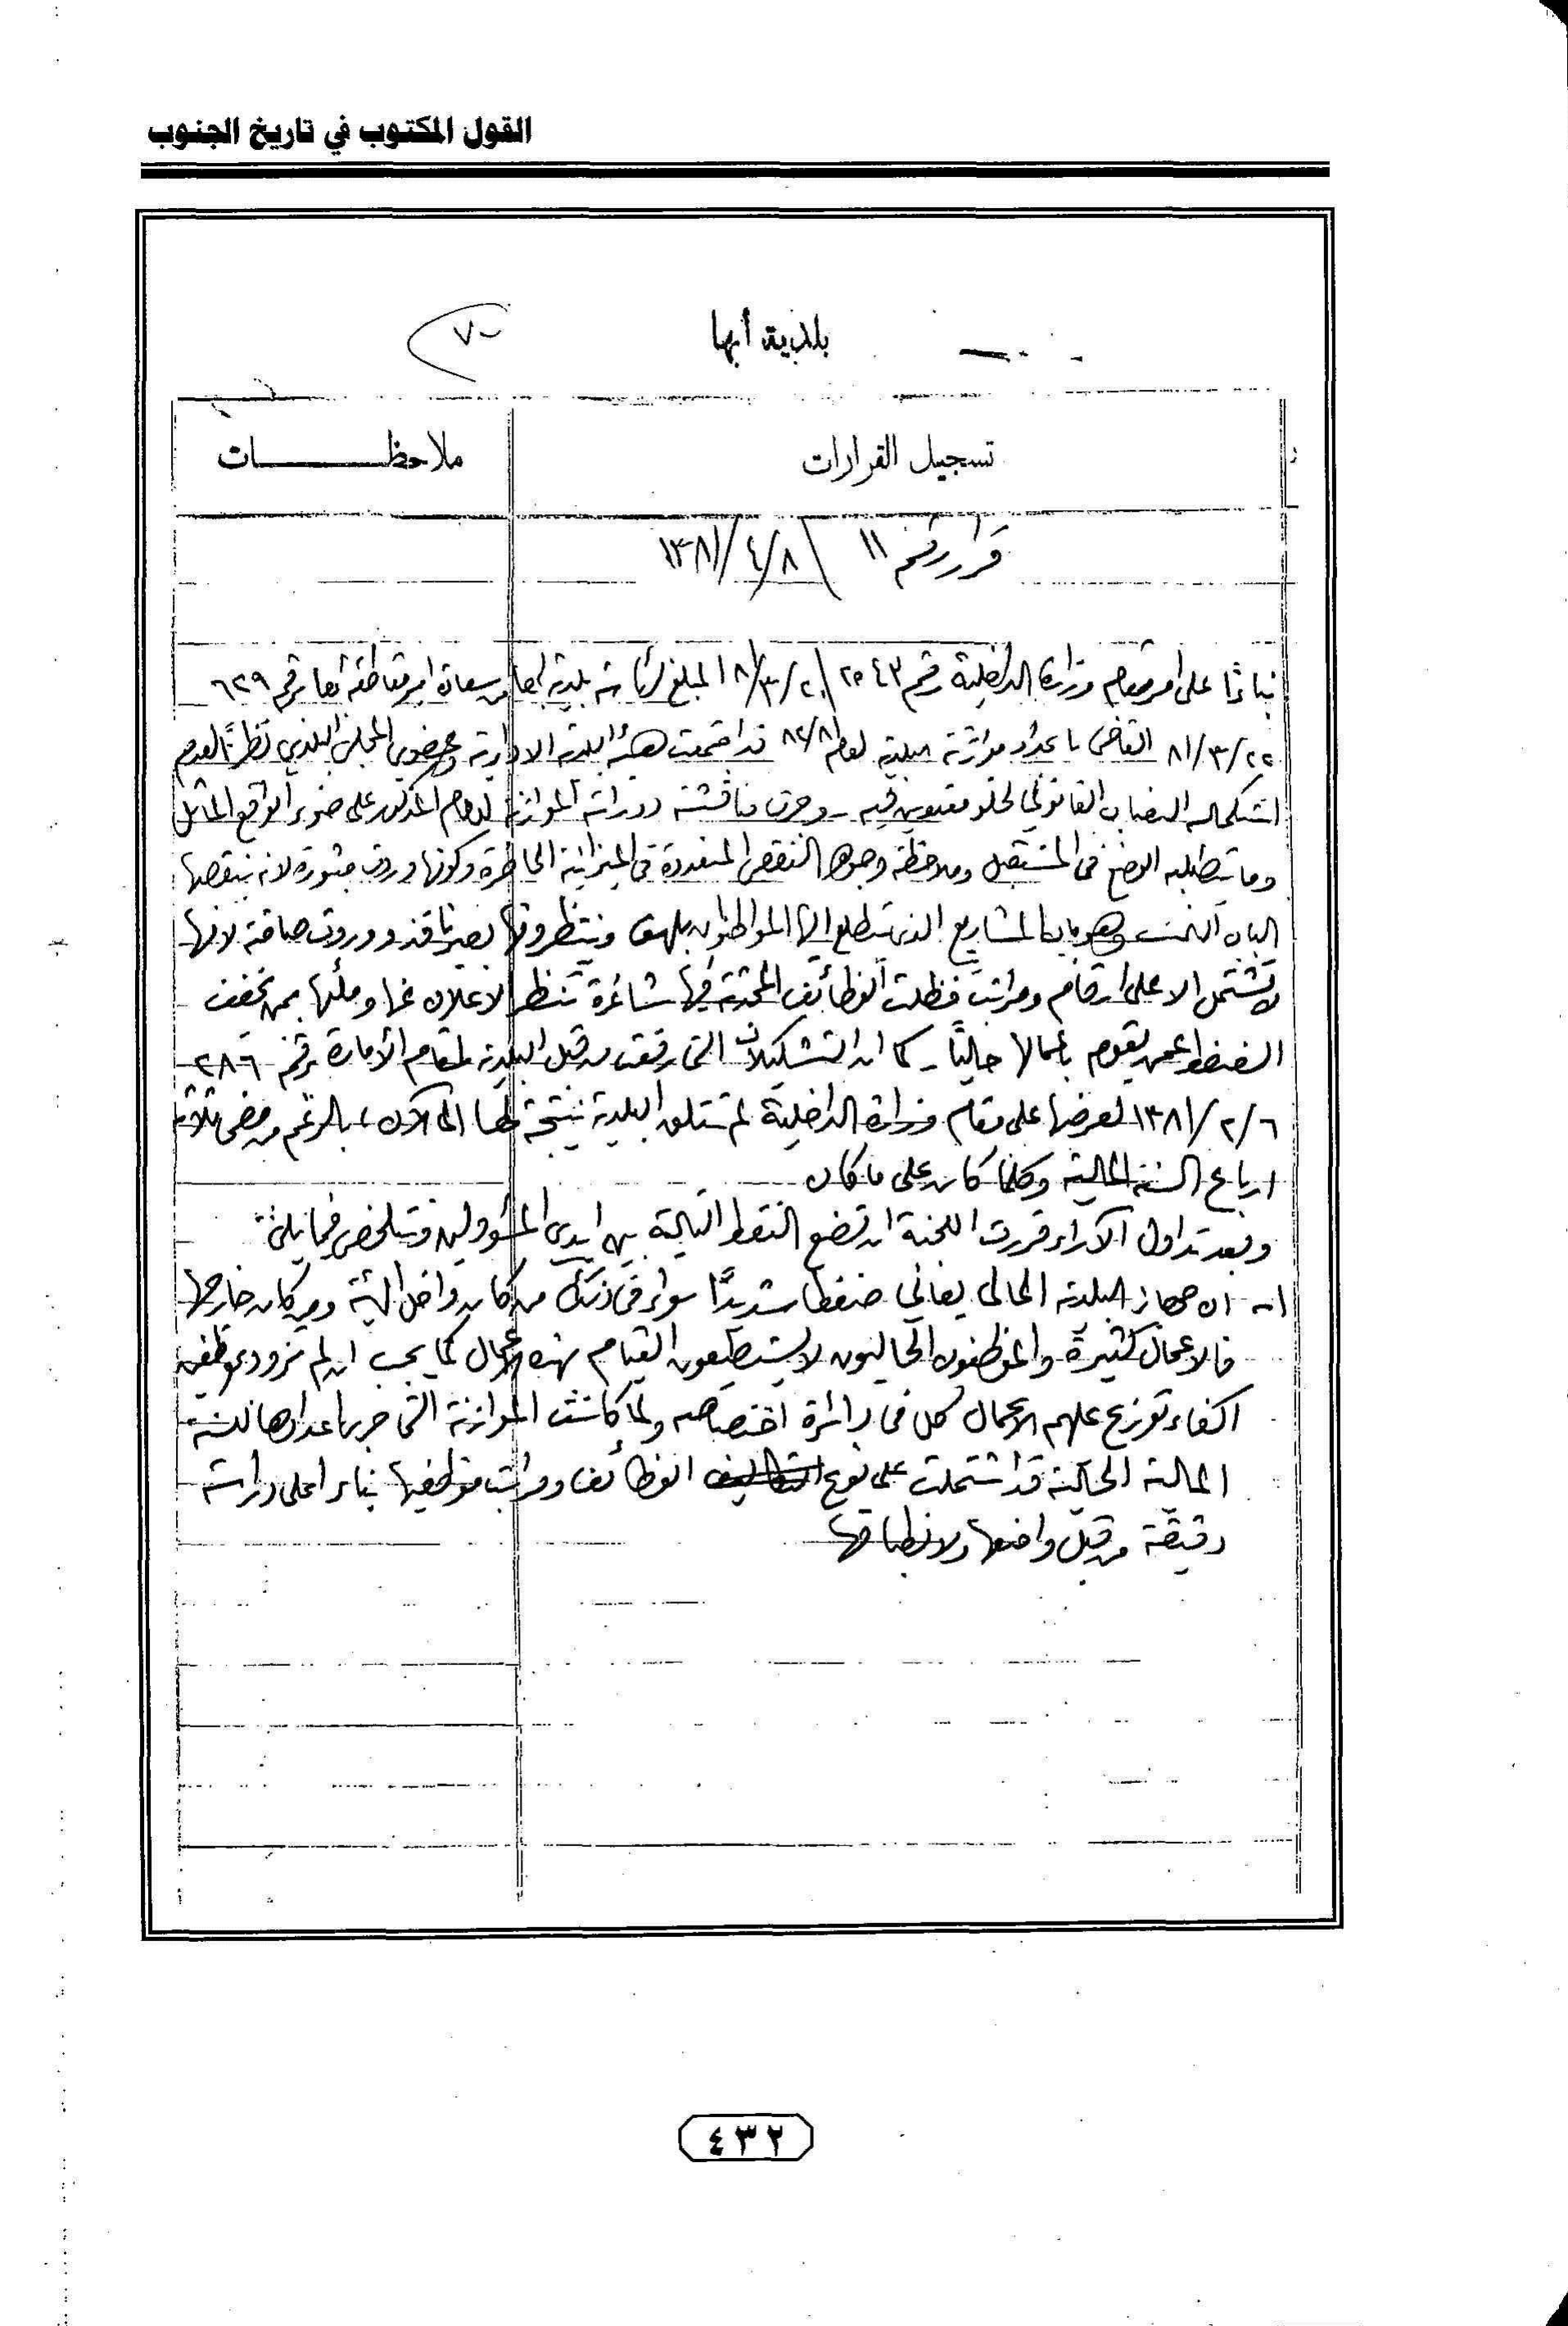 القول المكتوب في تاريخ الجنوب
بلدية أبها
٧٠
تسجيل القرارات
ملاحظــــات
قرار رقم ١١ \ ٨/ ٤/ ١٣٨١
بناءًا على امر مقام وزارة الداخلية رقم ٢٥٤٣ \ المبلغ لرئاسة بلدية ابها من سعادة امير مقاطعتها برقم ٦٢٩
٨١/٣/٢٥ القاضي باعداد موازنة البلدية لعام ٨٢/٨١ قد اجتمعت هيئة البلدية الادارية وعضوي المجلس البلدي نظرًا لعدم
استكماله النصاب القانوني لخلو مقعدين فيه - وجرى مناقشة ودراسة الموازنة للعام المذكور على ضوء الواقع الماثل
وما يتطلبه الوضع في المستقبل وملاحظة وجوه النقص المتعددة في الميزانية الحاضرة وكونها وردت مبتورة لانه ينقصها
الباب الثالث وهو باب المشاريع الذي يتطلع اليها المواطنون بلهف وينتظرونها بصبر نافذ ووردت صامتة لانها
لا تشتمل الا على ارقام ومراتب فظلت الوظائف المحدثة فيها شاغرة تنتظر الاعلان عنها وملئها بمن يخفف
الضغط عمن يقوم باعمالها حاليًا - كما ان التشكيلات التي رفعت من قبل البلدية لمقام الأمارة برقم ٢٨٦
٦/ ٢/ ١٣٨١ لعرضها على مقام وزارة الداخلية لم تتلق البلدية نتيجة لها الى الآن ، بالرغم من مضي ثلاثة
ارباع السنة المالية وكلما كان على ما كان
وبعد تداول الآراء قررت اللجنة ان تضع النقط التالية بين ايدي المسؤولين وتتلخص فيما يلي
١- ان جهاز البلدية الحالي يعاني ضغطا شديدًا سواء في ذلك من كان داخل الهيئة ومن كان خارجها
فالاعمال كثيرة والموظفون الحاليون لا يستطيعون القيام بهذه الاعمال كما يجب ان لم تزود بموظفين
اكفاء توزع عليهم الاعمال كل في دائرة اختصاصه ولما كانت الموازنة التي جرى اعدادها للسنة
المالية الحالية قد اشتملت على نوع الوظائف ومراتب موظفيها بناء على دراسة
دقيقة من قبل واضعها ولانطباقها
٤٣٢